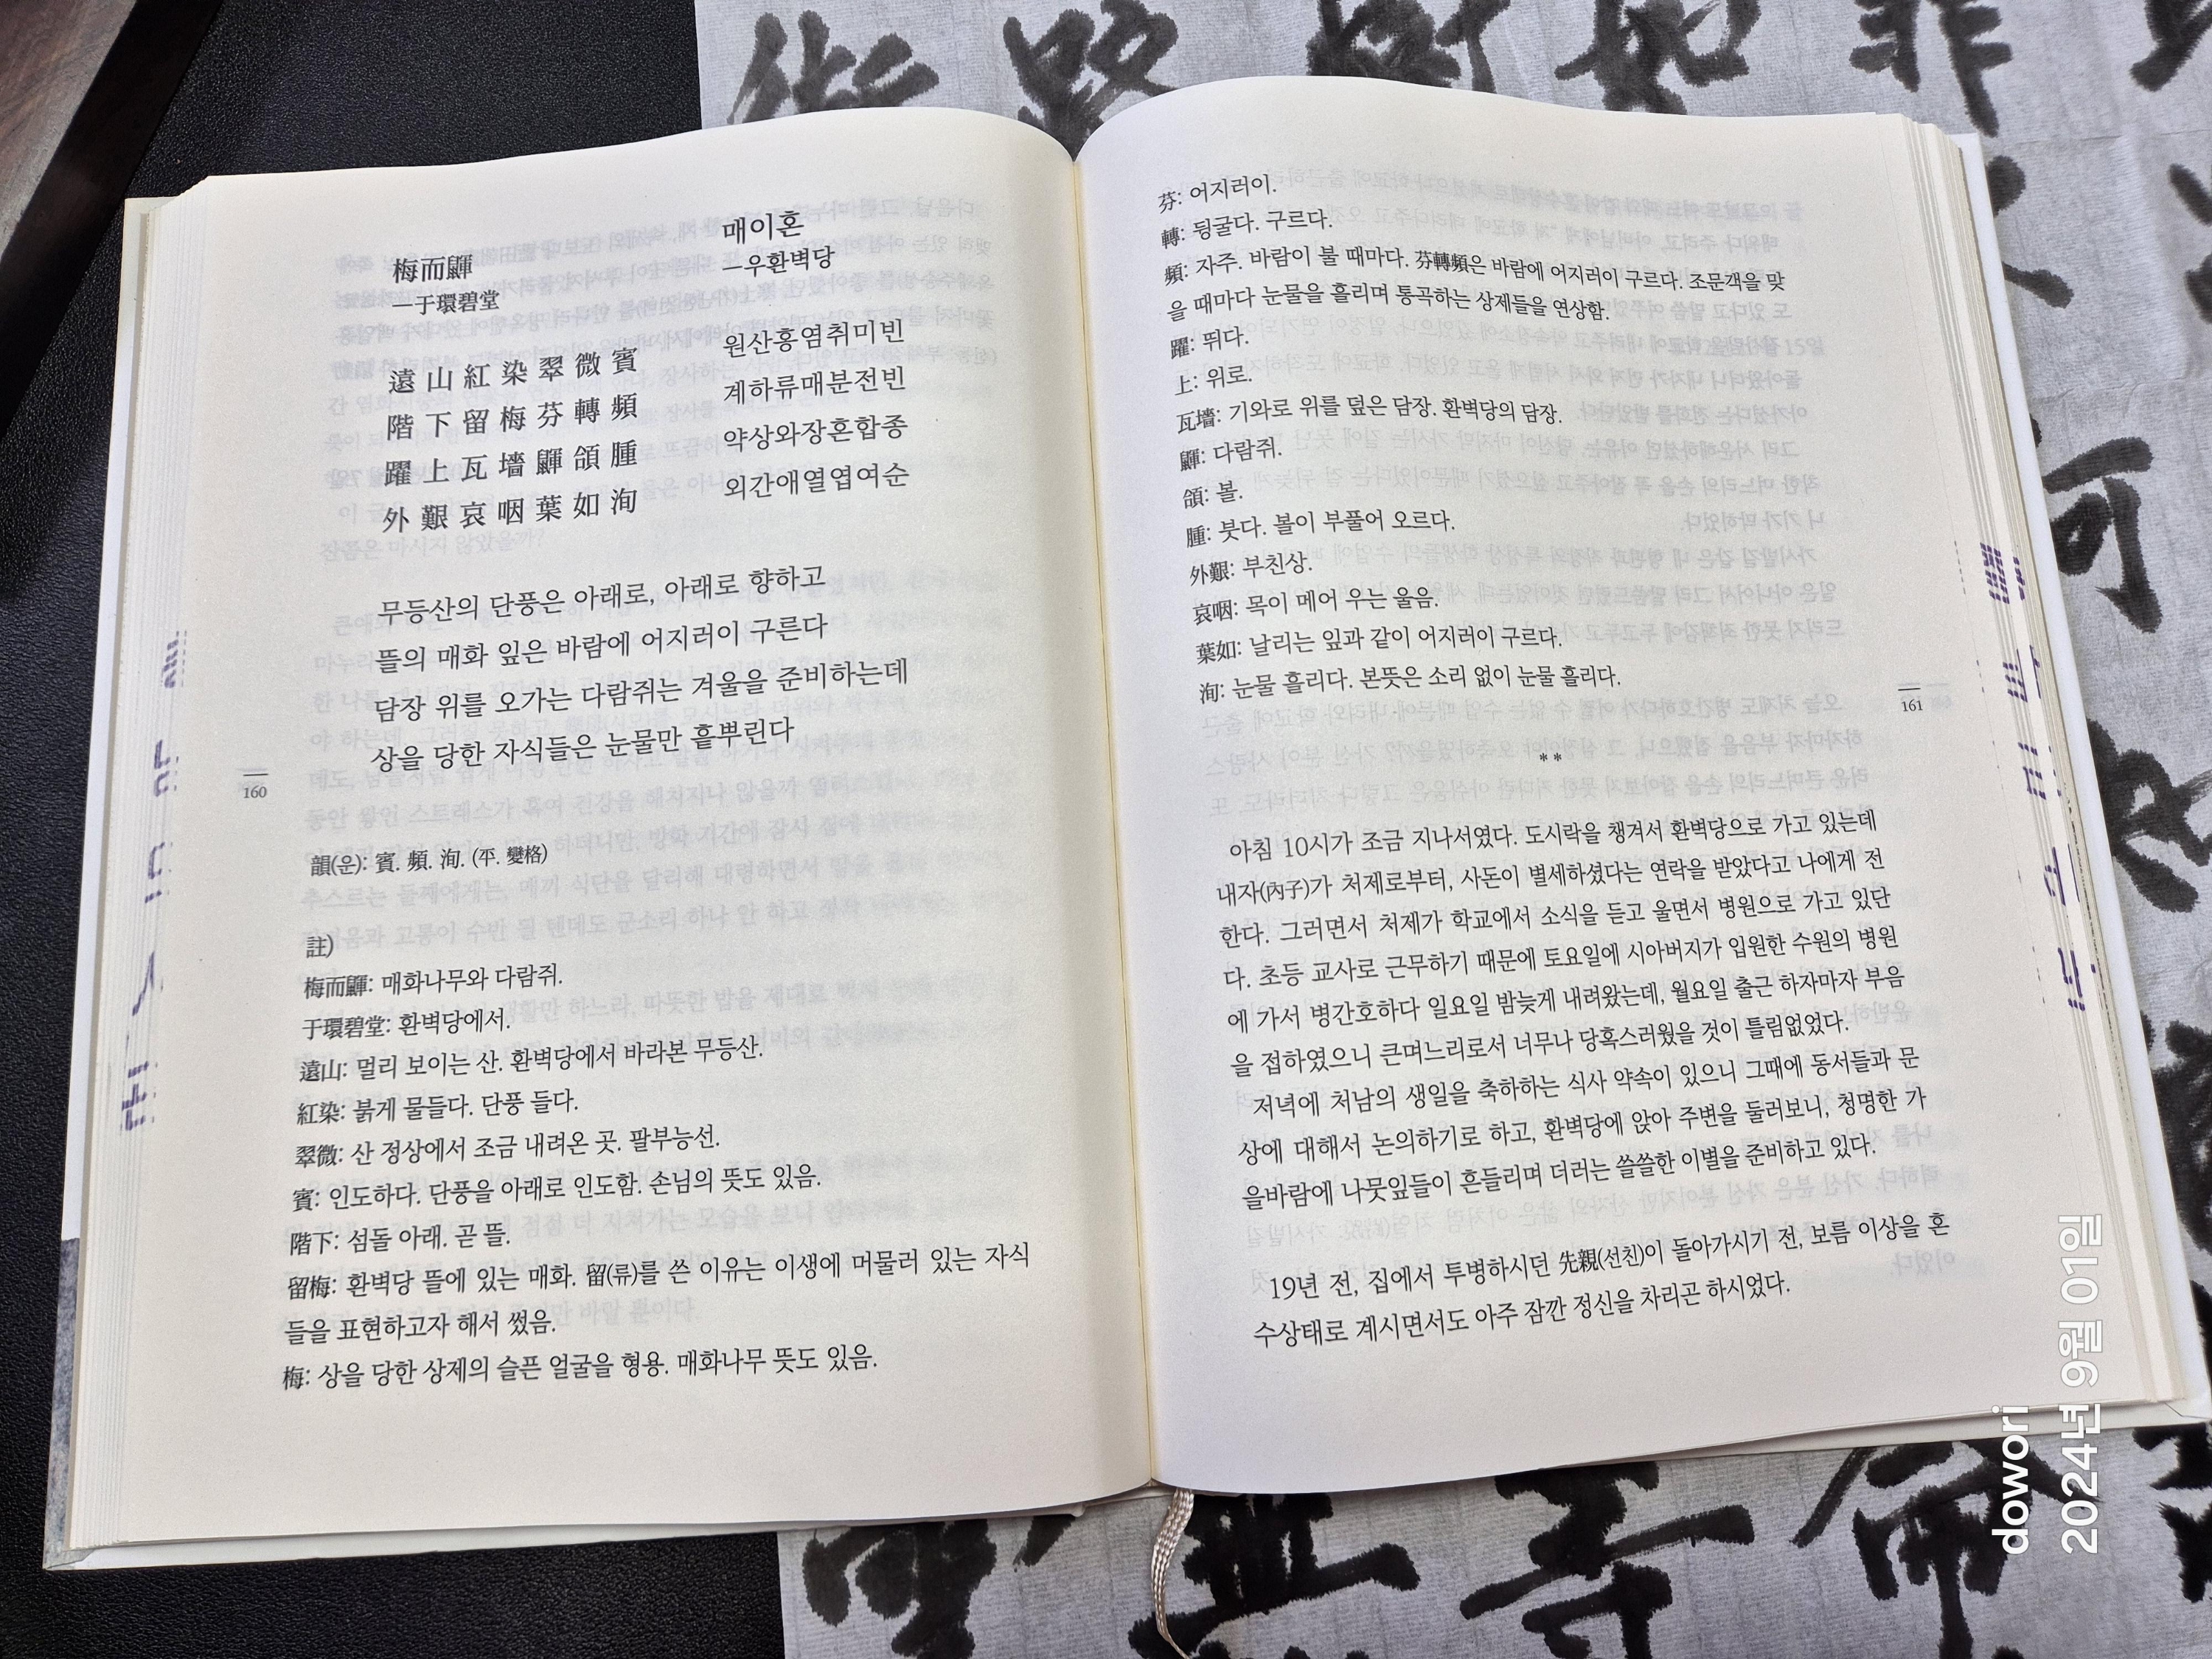 梅而鼲
—于環碧堂
遠山紅染翠微賓
階下留梅芬轉頻
躍上瓦墻鼲頜腫
外艱哀咽葉如洵
매이혼
—우환벽당
원산홍염취미빈
계하류매분전빈
약상와장혼합종
외간애열엽여순
무등산의 단풍은 아래로, 아래로 향하고
뜰의 매화 잎은 바람에 어지러이 구른다
담장 위를 오가는 다람쥐는 겨울을 준비하는데
상을 당한 자식들은 눈물만 흩뿌린다
160
韻(운): 賓. 頻. 洵. (平. 變格)
註)
梅而鼲: 매화나무와 다람쥐.
于環碧堂: 환벽당에서.
遠山: 멀리 보이는 산. 환벽당에서 바라본 무등산.
紅染: 붉게 물들다. 단풍 들다.
翠微: 산 정상에서 조금 내려온 곳. 팔부능선.
賓: 인도하다. 단풍을 아래로 인도함. 손님의 뜻도 있음.
階下: 섬돌 아래. 곧 뜰.
留梅: 환벽당 뜰에 있는 매화. 留(류)를 쓴 이유는 이생에 머물러 있는 자식
들을 표현하고자 해서 썼음.
梅: 상을 당한 상제의 슬픈 얼굴을 형용. 매화나무 뜻도 있음.
芬: 어지러이.
轉: 뒹굴다. 구르다.
頻: 자주. 바람이 불 때마다. 芬轉頻은 바람에 어지러이 구르다. 조문객을 맞
을 때마다 눈물을 흘리며 통곡하는 상제들을 연상함.
躍: 뛰다.
上: 위로.
瓦墻: 기와로 위를 덮은 담장. 환벽당의 담장.
鼲: 다람쥐.
頜: 볼.
腫: 붓다. 볼이 부풀어 오르다.
外艱: 부친상.
哀咽: 목이 메어 우는 울음.
葉如: 날리는 잎과 같이 어지러이 구르다.
洵: 눈물 흘리다. 본뜻은 소리 없이 눈물 흘리다.
161
**
아침 10시가 조금 지나서였다. 도시락을 챙겨서 환벽당으로 가고 있는데
내자(內子)가 처제로부터, 사돈이 별세하셨다는 연락을 받았다고 나에게 전
한다. 그러면서 처제가 학교에서 소식을 듣고 울면서 병원으로 가고 있단
다. 초등 교사로 근무하기 때문에 토요일에 시아버지가 입원한 수원의 병원
에 가서 병간호하다 일요일 밤늦게 내려왔는데, 월요일 출근 하자마자 부음
을 접하였으니 큰며느리로서 너무나 당혹스러웠을 것이 틀림없었다.
저녁에 처남의 생일을 축하하는 식사 약속이 있으니 그때에 동서들과 문
상에 대해서 논의하기로 하고, 환벽당에 앉아 주변을 둘러보니, 청명한 가
을바람에 나뭇잎들이 흔들리며 더러는 쓸쓸한 이별을 준비하고 있다.
19년 전, 집에서 투병하시던 先親(선친)이 돌아가시기 전, 보름 이상을 혼
수상태로 계시면서도 아주 잠깐 정신을 차리곤 하시었다.
dowori
2024년 9월 01일